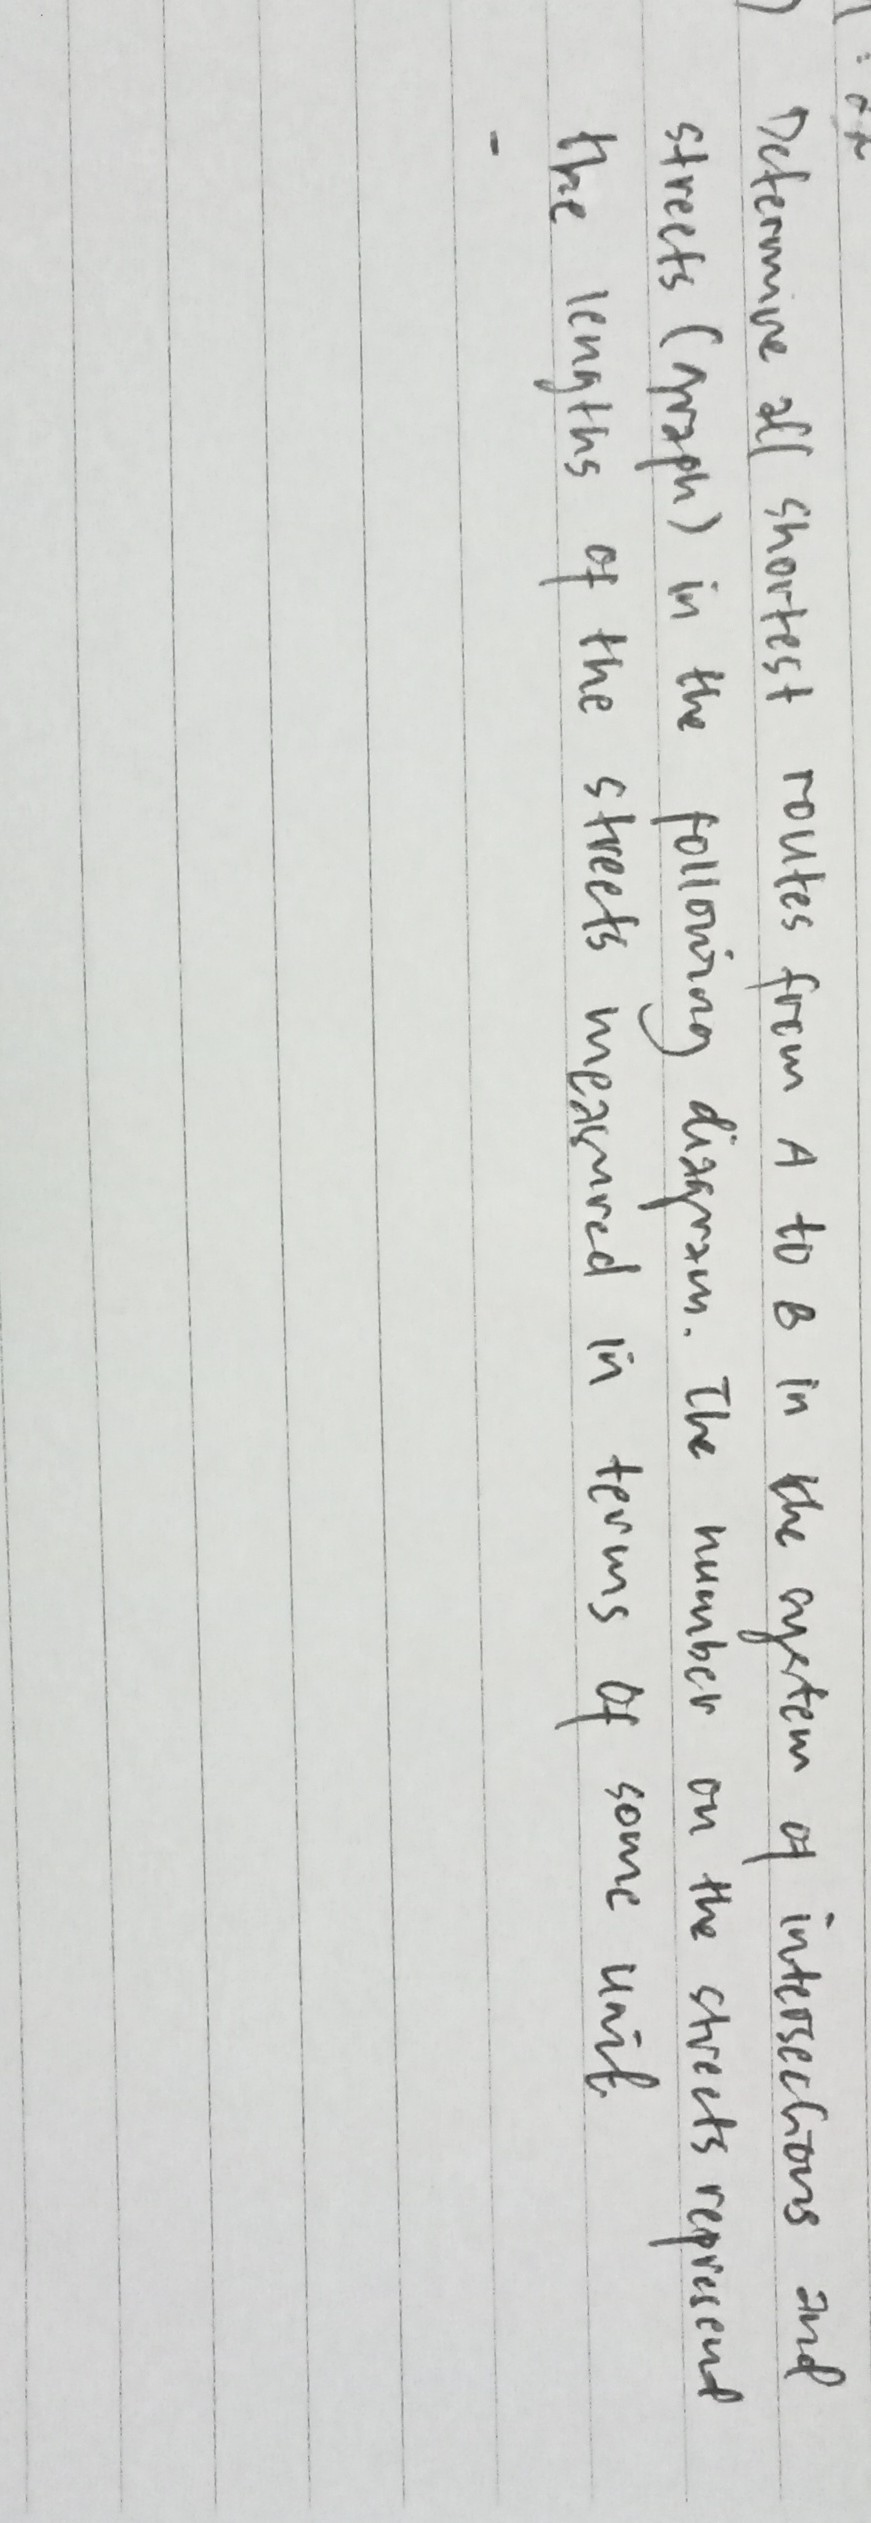 Determine all shortest routes from A to B in the system of intersections and
streets (graph) in the following diagram. The number on the streets represent
the lengths of the streets measured in terms of some unit.